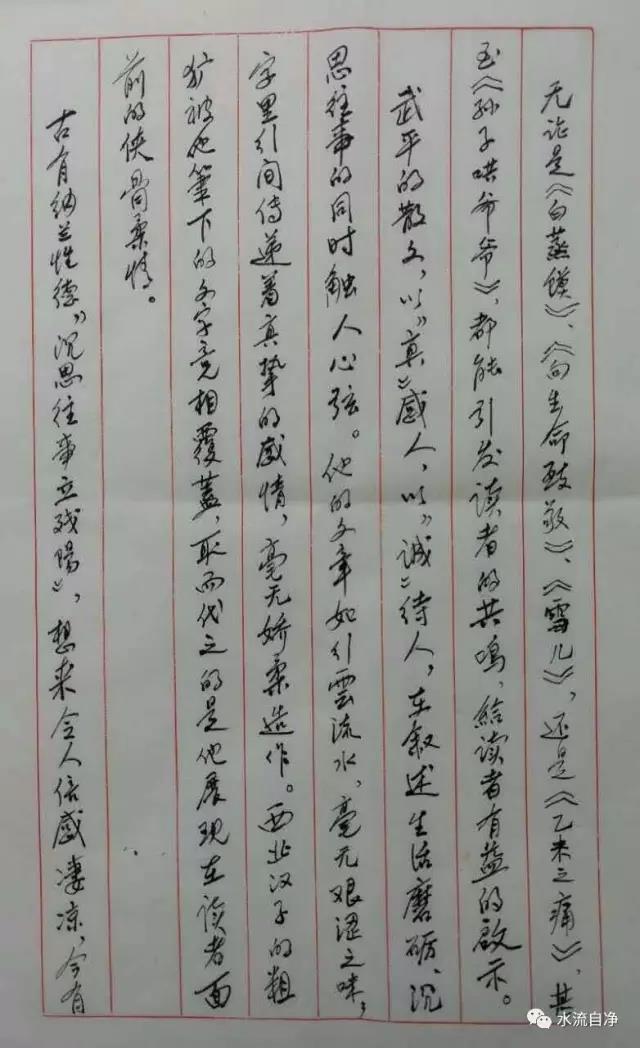 无论是《白蒸馍》、《向生命致敬》、《雪儿》，还是《乙未之痛》，甚
至《孙子哄爷爷》，都能引发读者的共鸣，給读者有益的啟示。
武平的散文，以“真”感人，以“诚”待人，在叙述生活磨砺、沉
思往事的同时触人心弦。他的文章如行雲流水，毫无艰涩之味，
字里行间传递着真挚的感情，毫无娇柔造作。西北汉子的粗
犷被他筆下的文字竞相覆蓋，取而代之的是他展現在读者面
前的侠骨柔情。
古有纳兰性德“沉思往事立残陽”，想来令人倍感凄凉，今有
水流自净